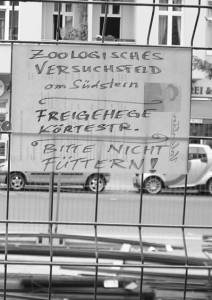 ZOOLOGISCHES
VERSUCHSFELD
am Südstern
FREIGEHEGE
KÖRTESTR.
BITTE NICHT
FÜTTERN!